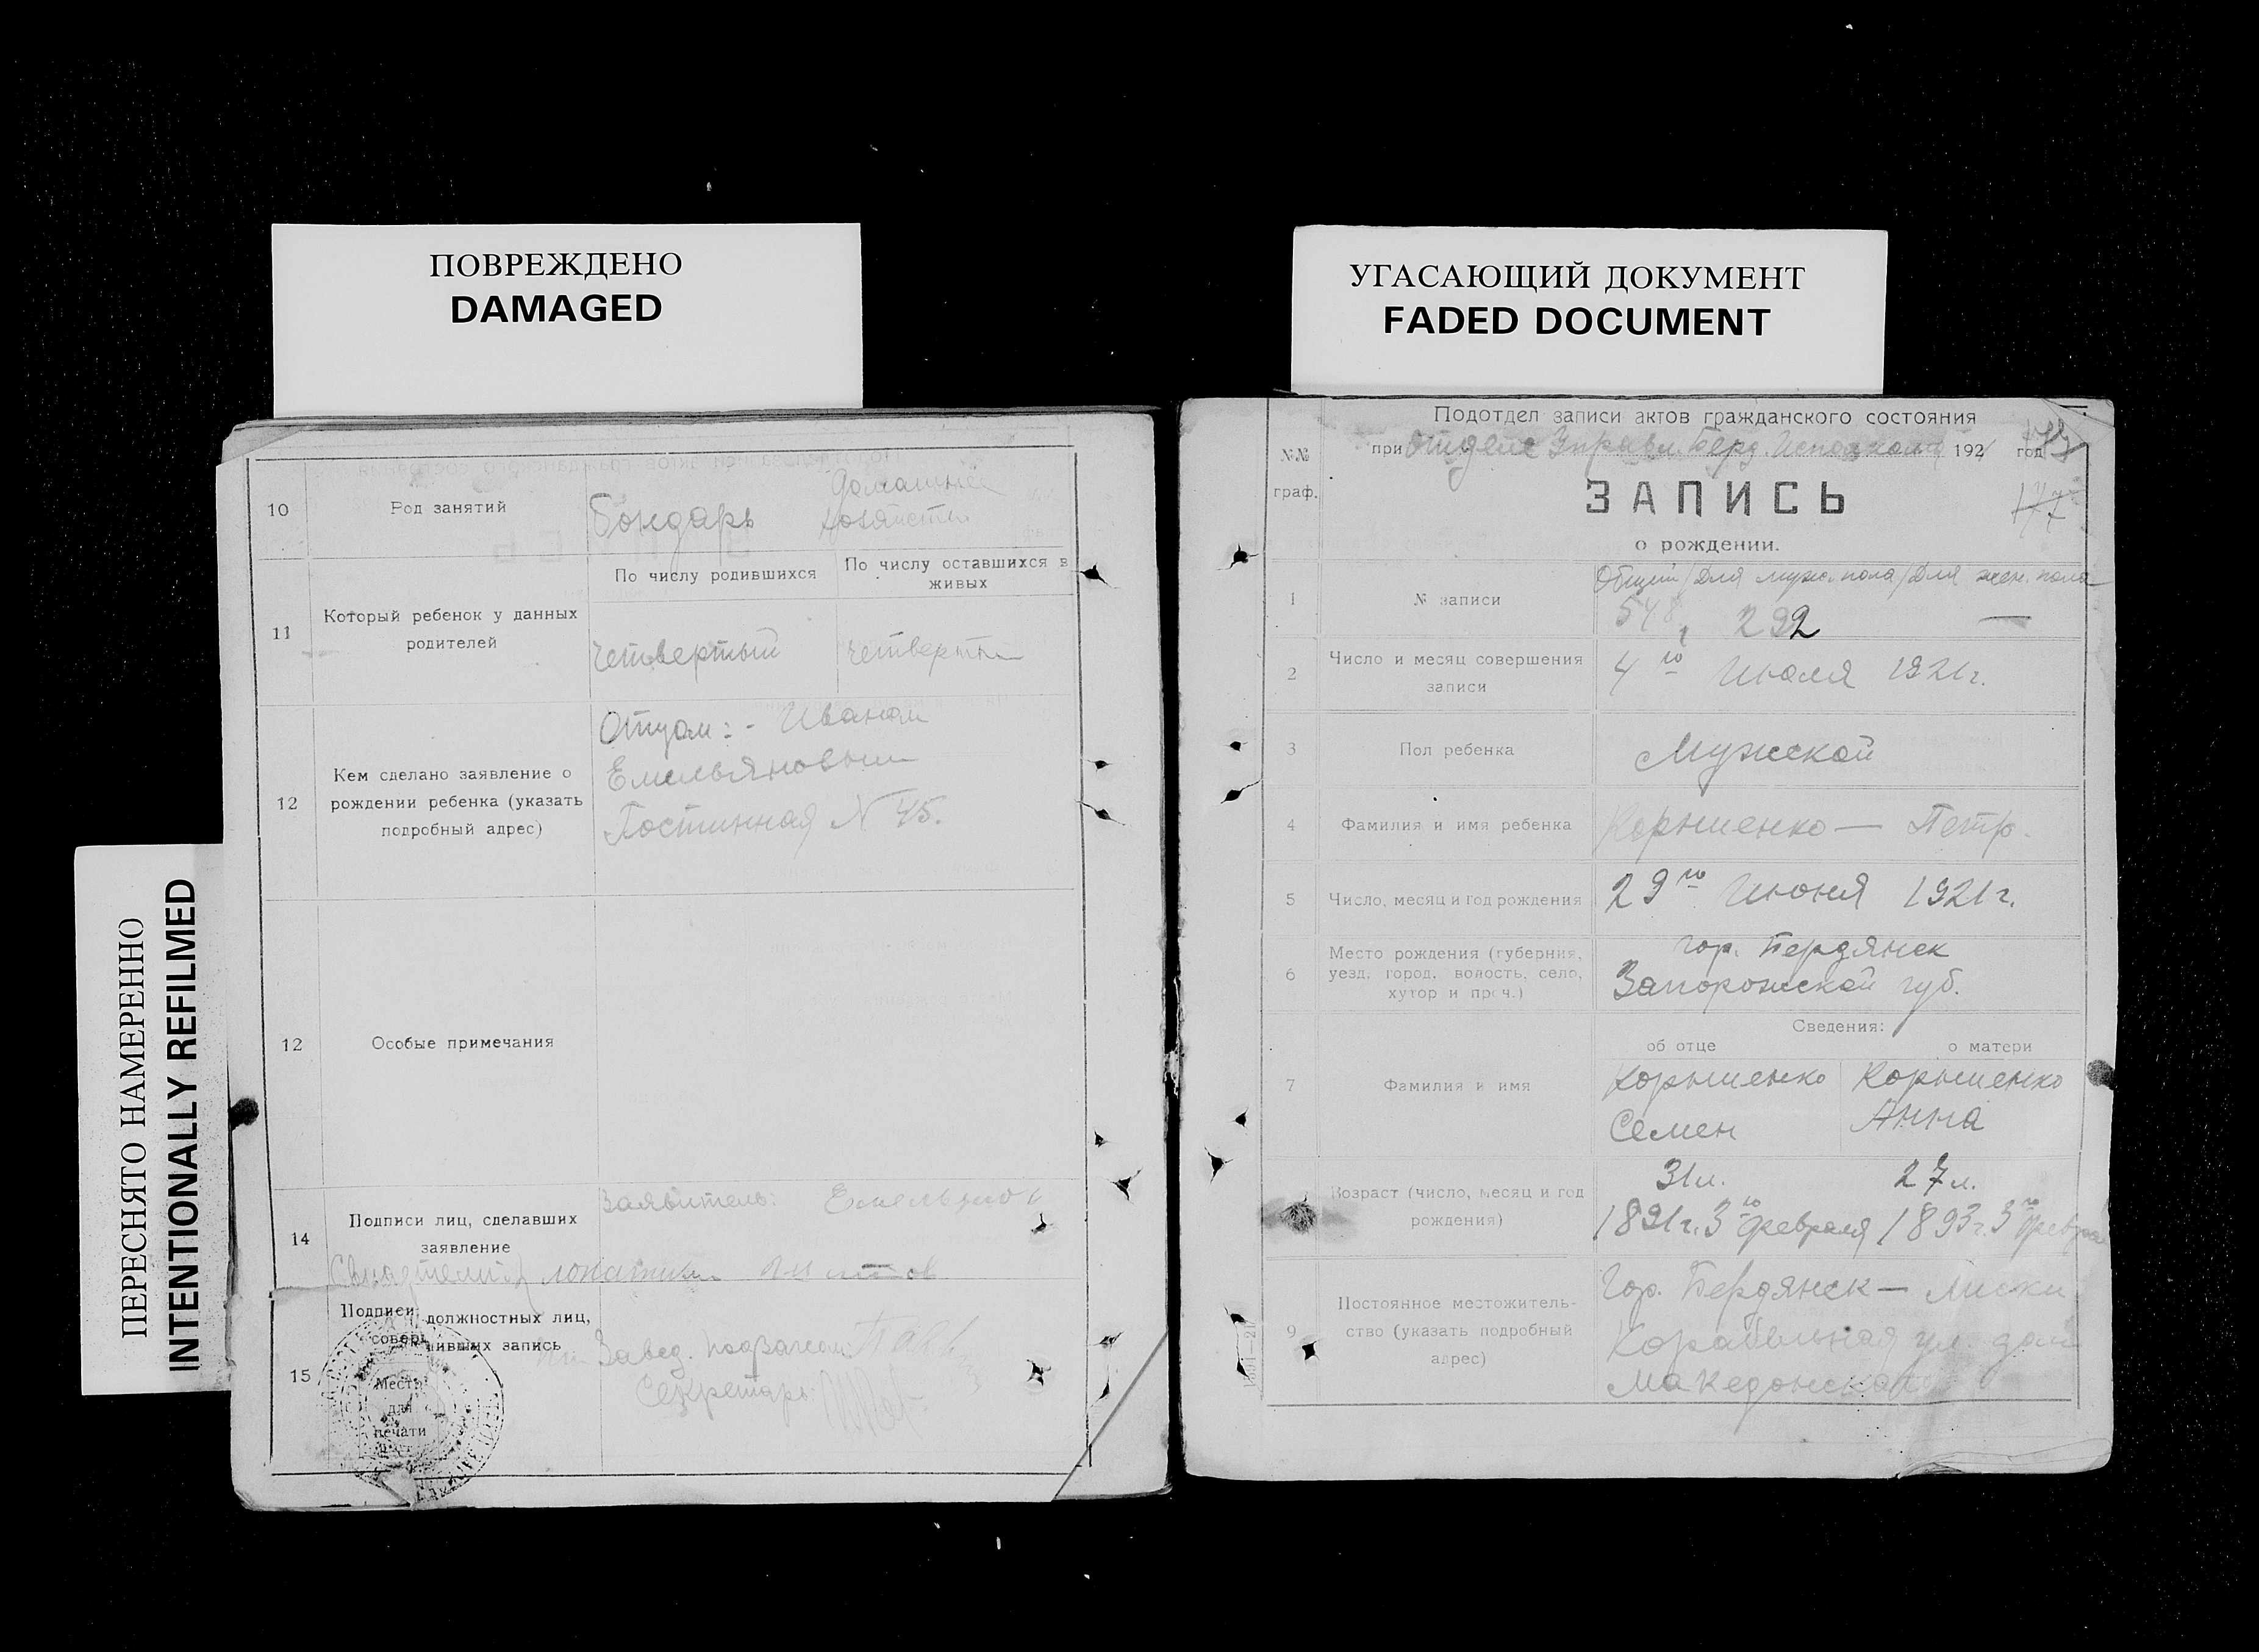 ПОВРЕЖДЕНО
DAMAGED
УГАСАЮЩИЙ ДОКУМЕНТ
FADED DOCUMENT
ПЕРЕСНЯТО НАМЕРЕННО
INTENTIONALLY REFILMED
10
Род занятий
Бондарь
домашнее
хозяйство
11
Который ребенок у данных
родителей
По числу родившихся
По числу оставшихся в
живых
четвертый
четвертый
12
Кем сделано заявление о
рождении ребенка (указать
подробный адрес)
Отцом: - Иваном
Емельяновым
Гостинная N 45.
12
Особые примечания
14
Подписи лиц, сделавших
заявление
Заявитель:
15
Подписи должностных лиц,
совершивших запись
Завед.
Секретарь
Место
для
печати
№№
граф.
Подотдел записи актов гражданского состояния
при Отделе Управл. Берд. Исполкома 1921 год
ЗАПИСЬ
о рождении.
177
1
№ записи
Общий / Для муж. пола / Для жен. пола
548 292 —
2
Число и месяц совершения
записи
4го Июля 1921г.
3
Пол ребенка
Мужской
4
Фамилия и имя ребенка
Корниенко — Петр.
5
Число, месяц и год рождения
29го Июня 1921г.
6
Место рождения (губерния,
уезд, город, волость, село,
хутор и проч.)
гор. Бердянск
Запорожской губ.
Сведения:
об отце
о матери
7
Фамилия и имя
Корниенко
Семен
Корниенко
Анна
Возраст (число, месяц и год
рождения)
31л.
1891г. 3го февраля
27л.
1893г. 3го
9
Постоянное местожитель-
ство (указать подробный
адрес)
Гор. Бердянск — Лиски
Корабельная ул. дом
Македонская